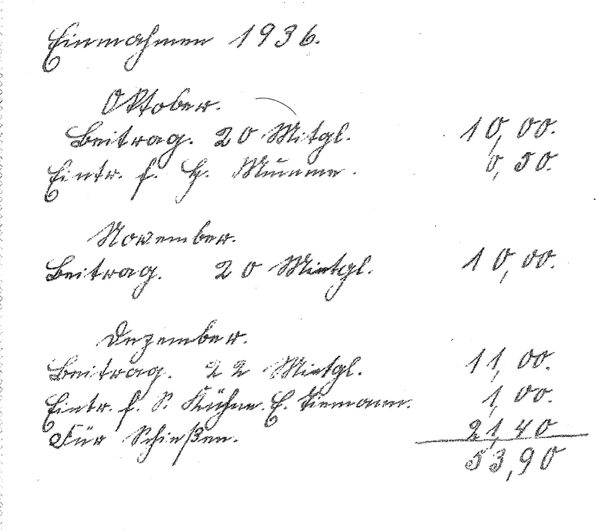 Einnahmen 1936.
Oktober.
Beitrag. 20 Mitgl. 10,00.
Eintr. f. H. Mumme. 0,50.
November.
Beitrag. 20 Mietgl. 10,00.
Dezember.
Beitrag. 22 Mietgl. 11,00.
Eintr. f. S. Kühne. E. Tiemann. 1,00.
Für Schießen. 21,40
53,90